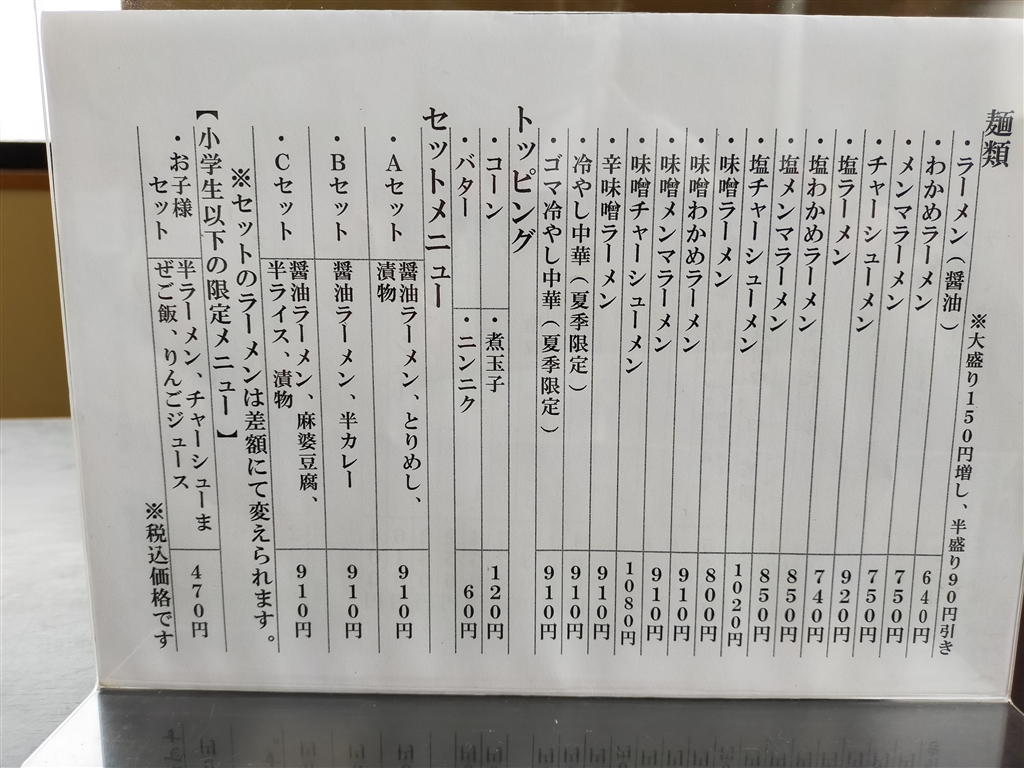 麺類
※大盛り150円増し、半盛り90円引き
・ラーメン（醤油） 640円
・わかめラーメン 750円
・メンマラーメン 750円
・チャーシューメン 920円
・塩ラーメン 740円
・塩わかめラーメン 850円
・塩メンマラーメン 850円
・塩チャーシューメン 1020円
・味噌ラーメン 800円
・味噌わかめラーメン 910円
・味噌メンマラーメン 910円
・味噌チャーシューメン 1080円
・辛味噌ラーメン 910円
・冷やし中華（夏季限定） 910円
・ゴマ冷やし中華（夏季限定） 910円
トッピング
・コーン ・煮玉子 120円
・バター ・ニンニク 60円
セットメニュー
・Aセット 醤油ラーメン、とりめし、
漬物 910円
・Bセット 醤油ラーメン、半カレー 910円
・Cセット 醤油ラーメン、麻婆豆腐、
半ライス、漬物 910円
※セットのラーメンは差額にて変えられます。
【小学生以下の限定メニュー】
・お子様 半ラーメン、チャーシューま
セット ぜご飯、りんごジュース 470円
※税込価格です